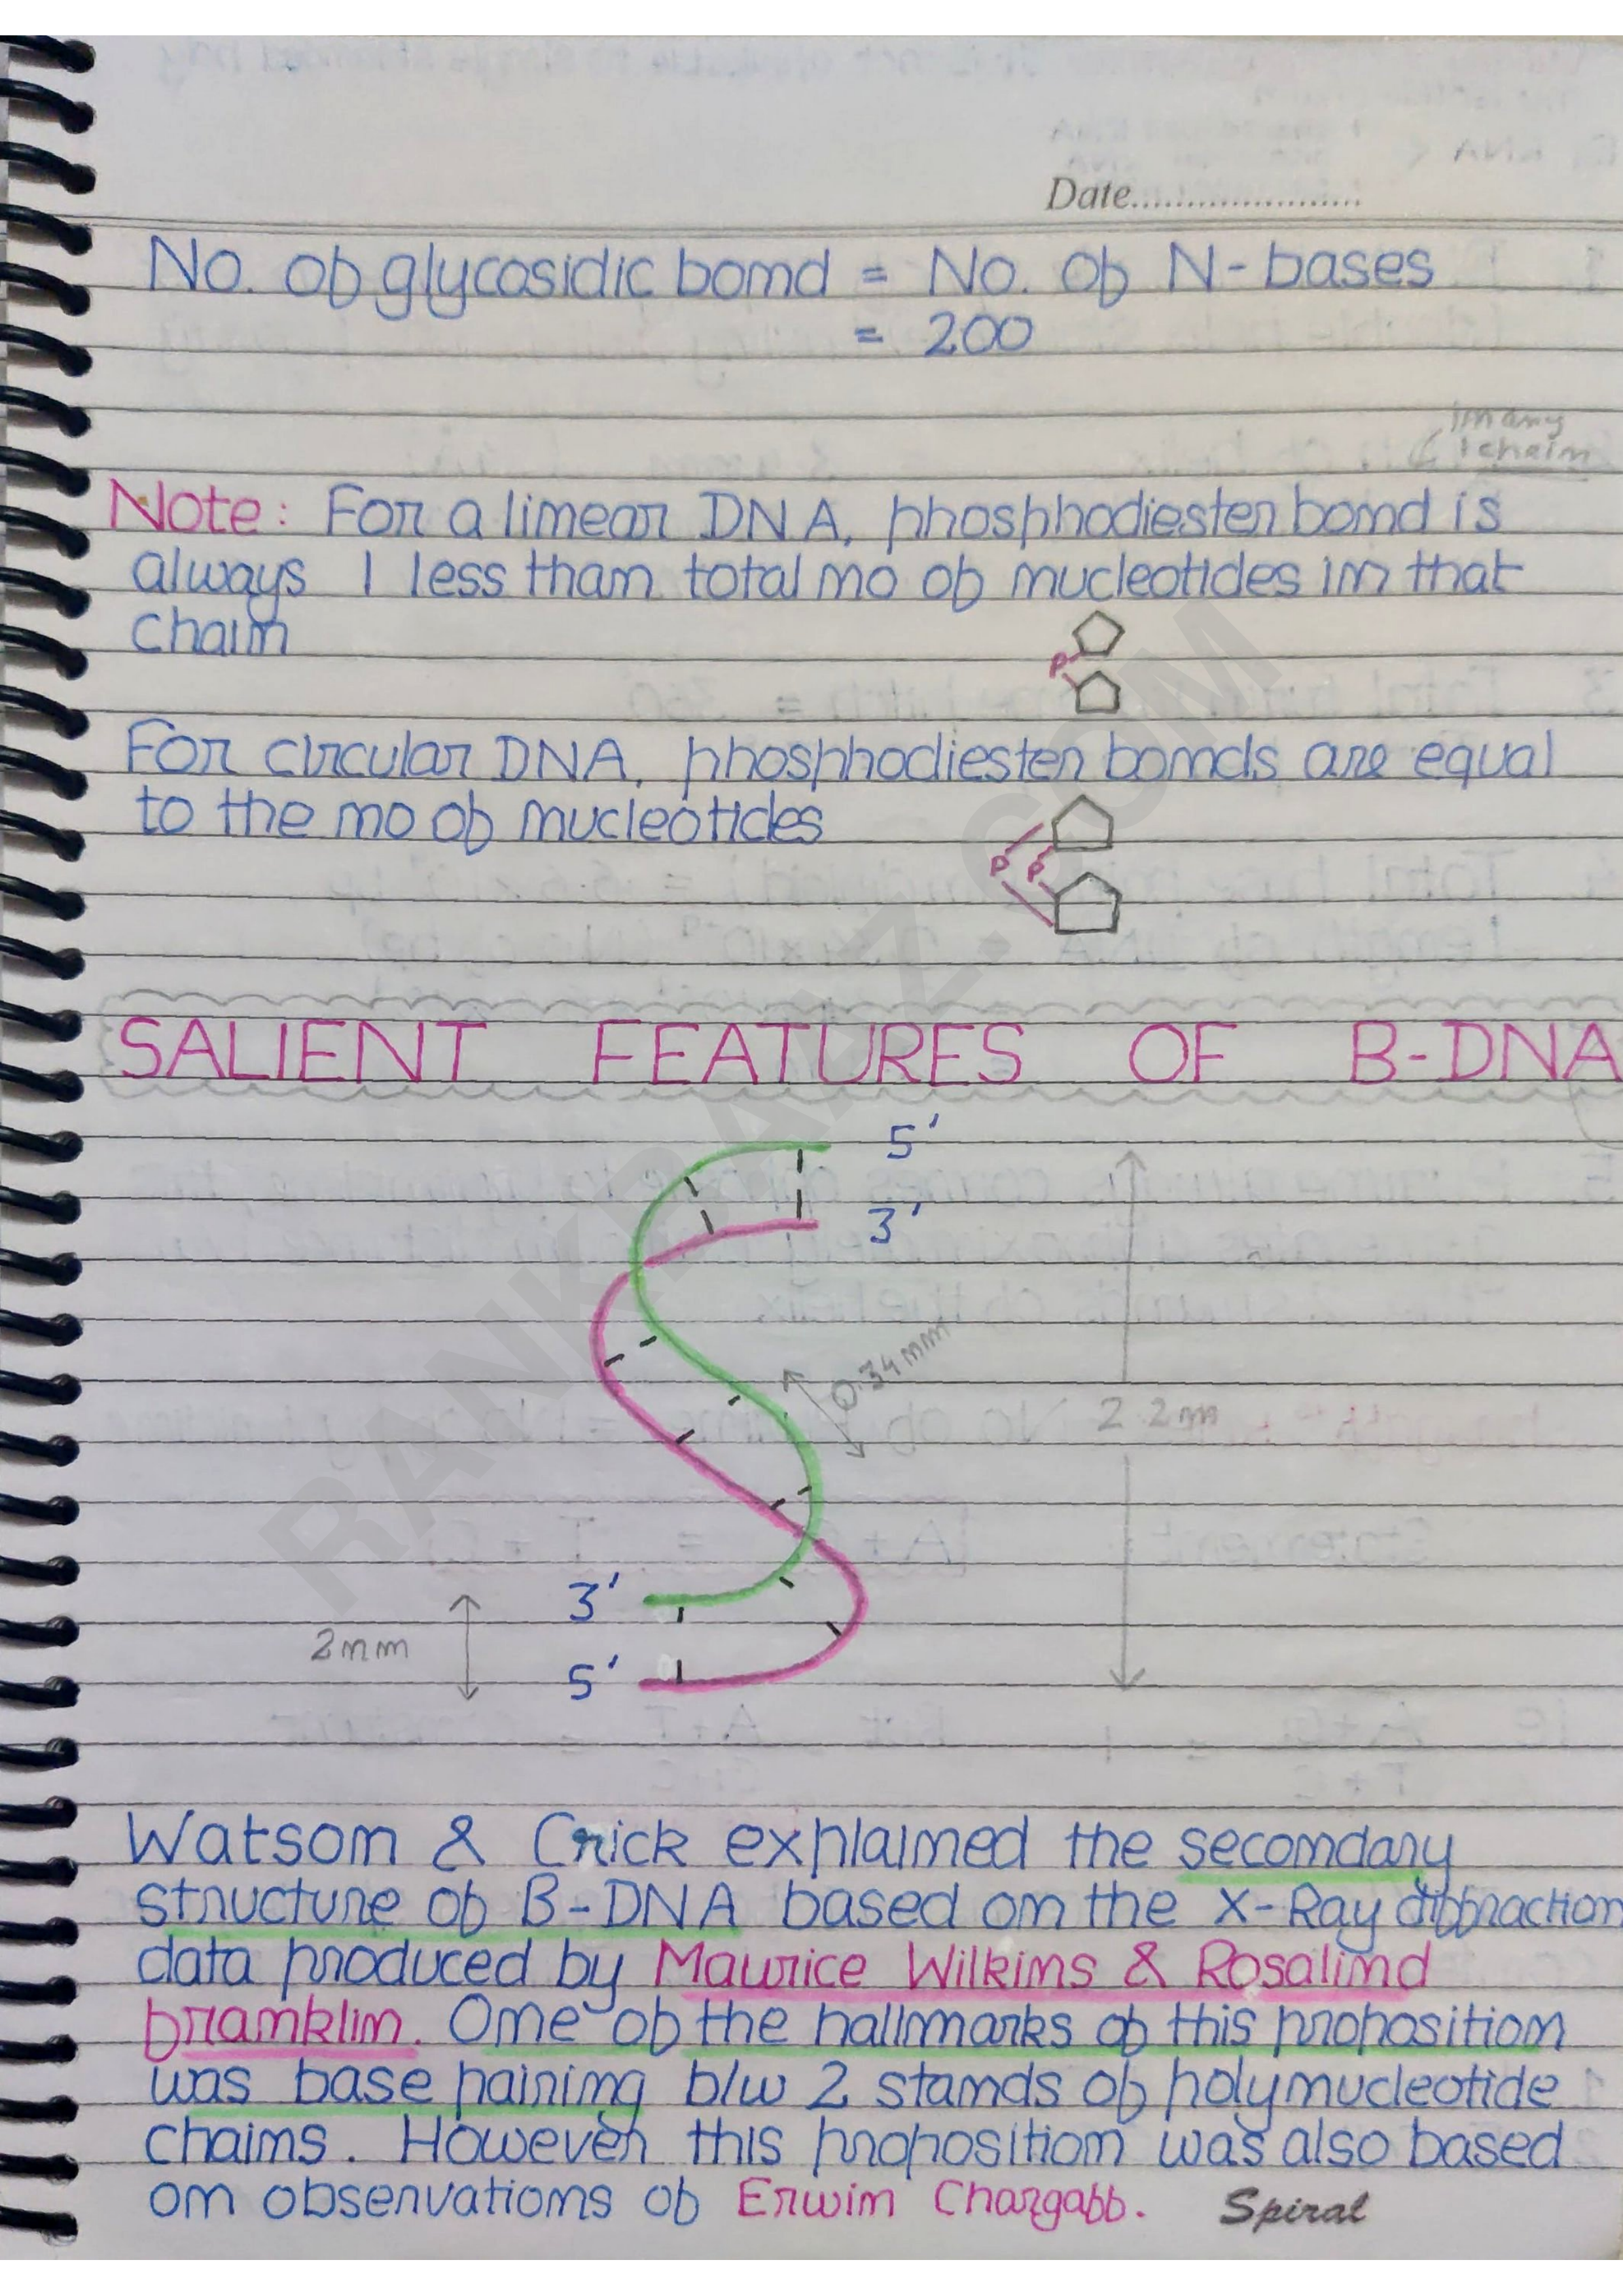 Date.....................
No. of glycosidic bond = No. of N-bases
= 200
in any
1 chain
Note: For a linear DNA, phosphodiester bond is
always 1 less than total no of nucleotides in that
chain
P
For circular DNA, phosphodiester bonds are equal
to the no of nucleotides
P P
SALIENT FEATURES OF B-DNA
5'
3'
0.34 nm
2.2m
3'
2nm
5'
Watson & Crick explained the secondary
structure of B-DNA based on the X-Ray diffraction
data produced by Maurice Wilkins & Rosalind
franklin. One of the hallmarks of this proposition
was base pairing b/w 2 stands of polynucleotide
chains. However this proposition was also based
on observations of Erwin Chargaff.
Spiral
RANKRAAZ.COM